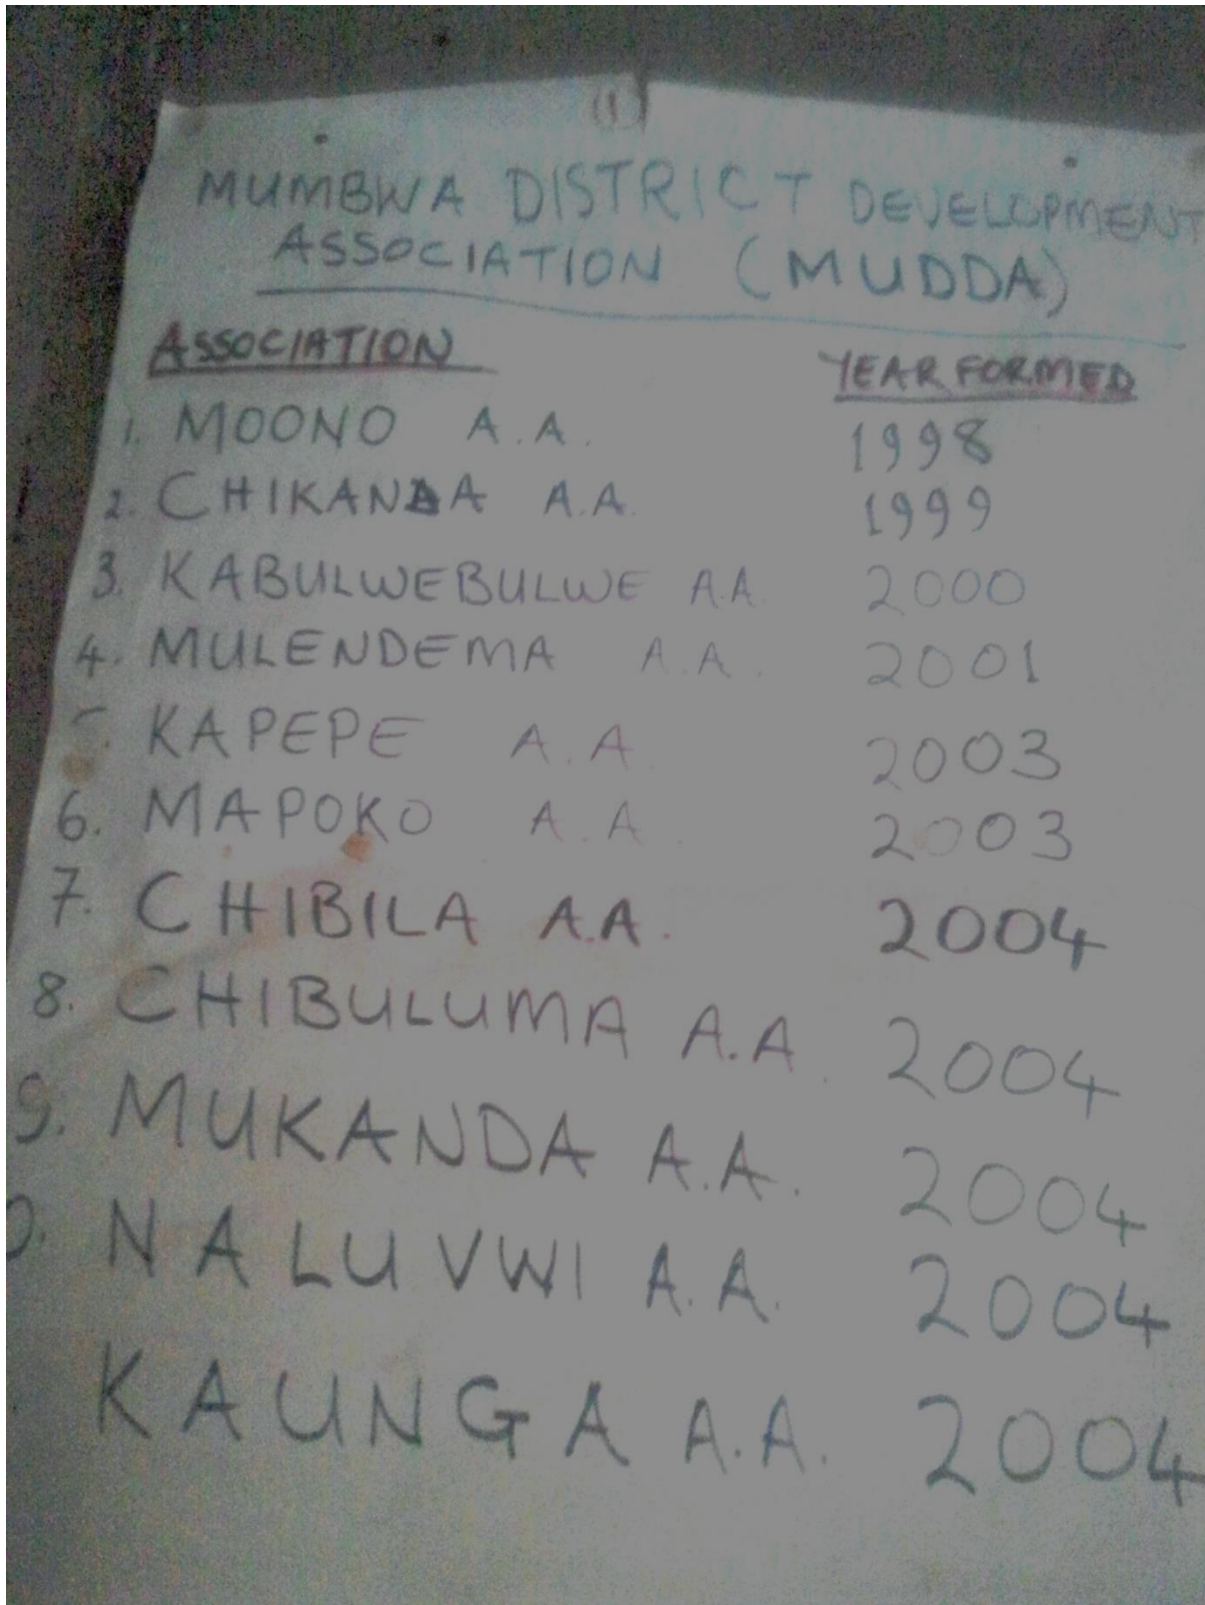 (1)
MUMBWA DISTRICT DEVELOPMENT
ASSOCIATION (MUDDA)
ASSOCIATION YEAR FORMED
1. MOONO A.A. 1998
2. CHIKANDA A.A. 1999
3. KABULWEBULWE A.A 2000
4. MULENDEMA A.A. 2001
KAPEPE A.A. 2003
6. MAPOKO A.A. 2003
7. CHIBILA A.A. 2004
8. CHIBULUMA A.A. 2004
9. MUKANDA A.A. 2004
0. NALUVWI A.A. 2004
KAUNGA A.A. 2004